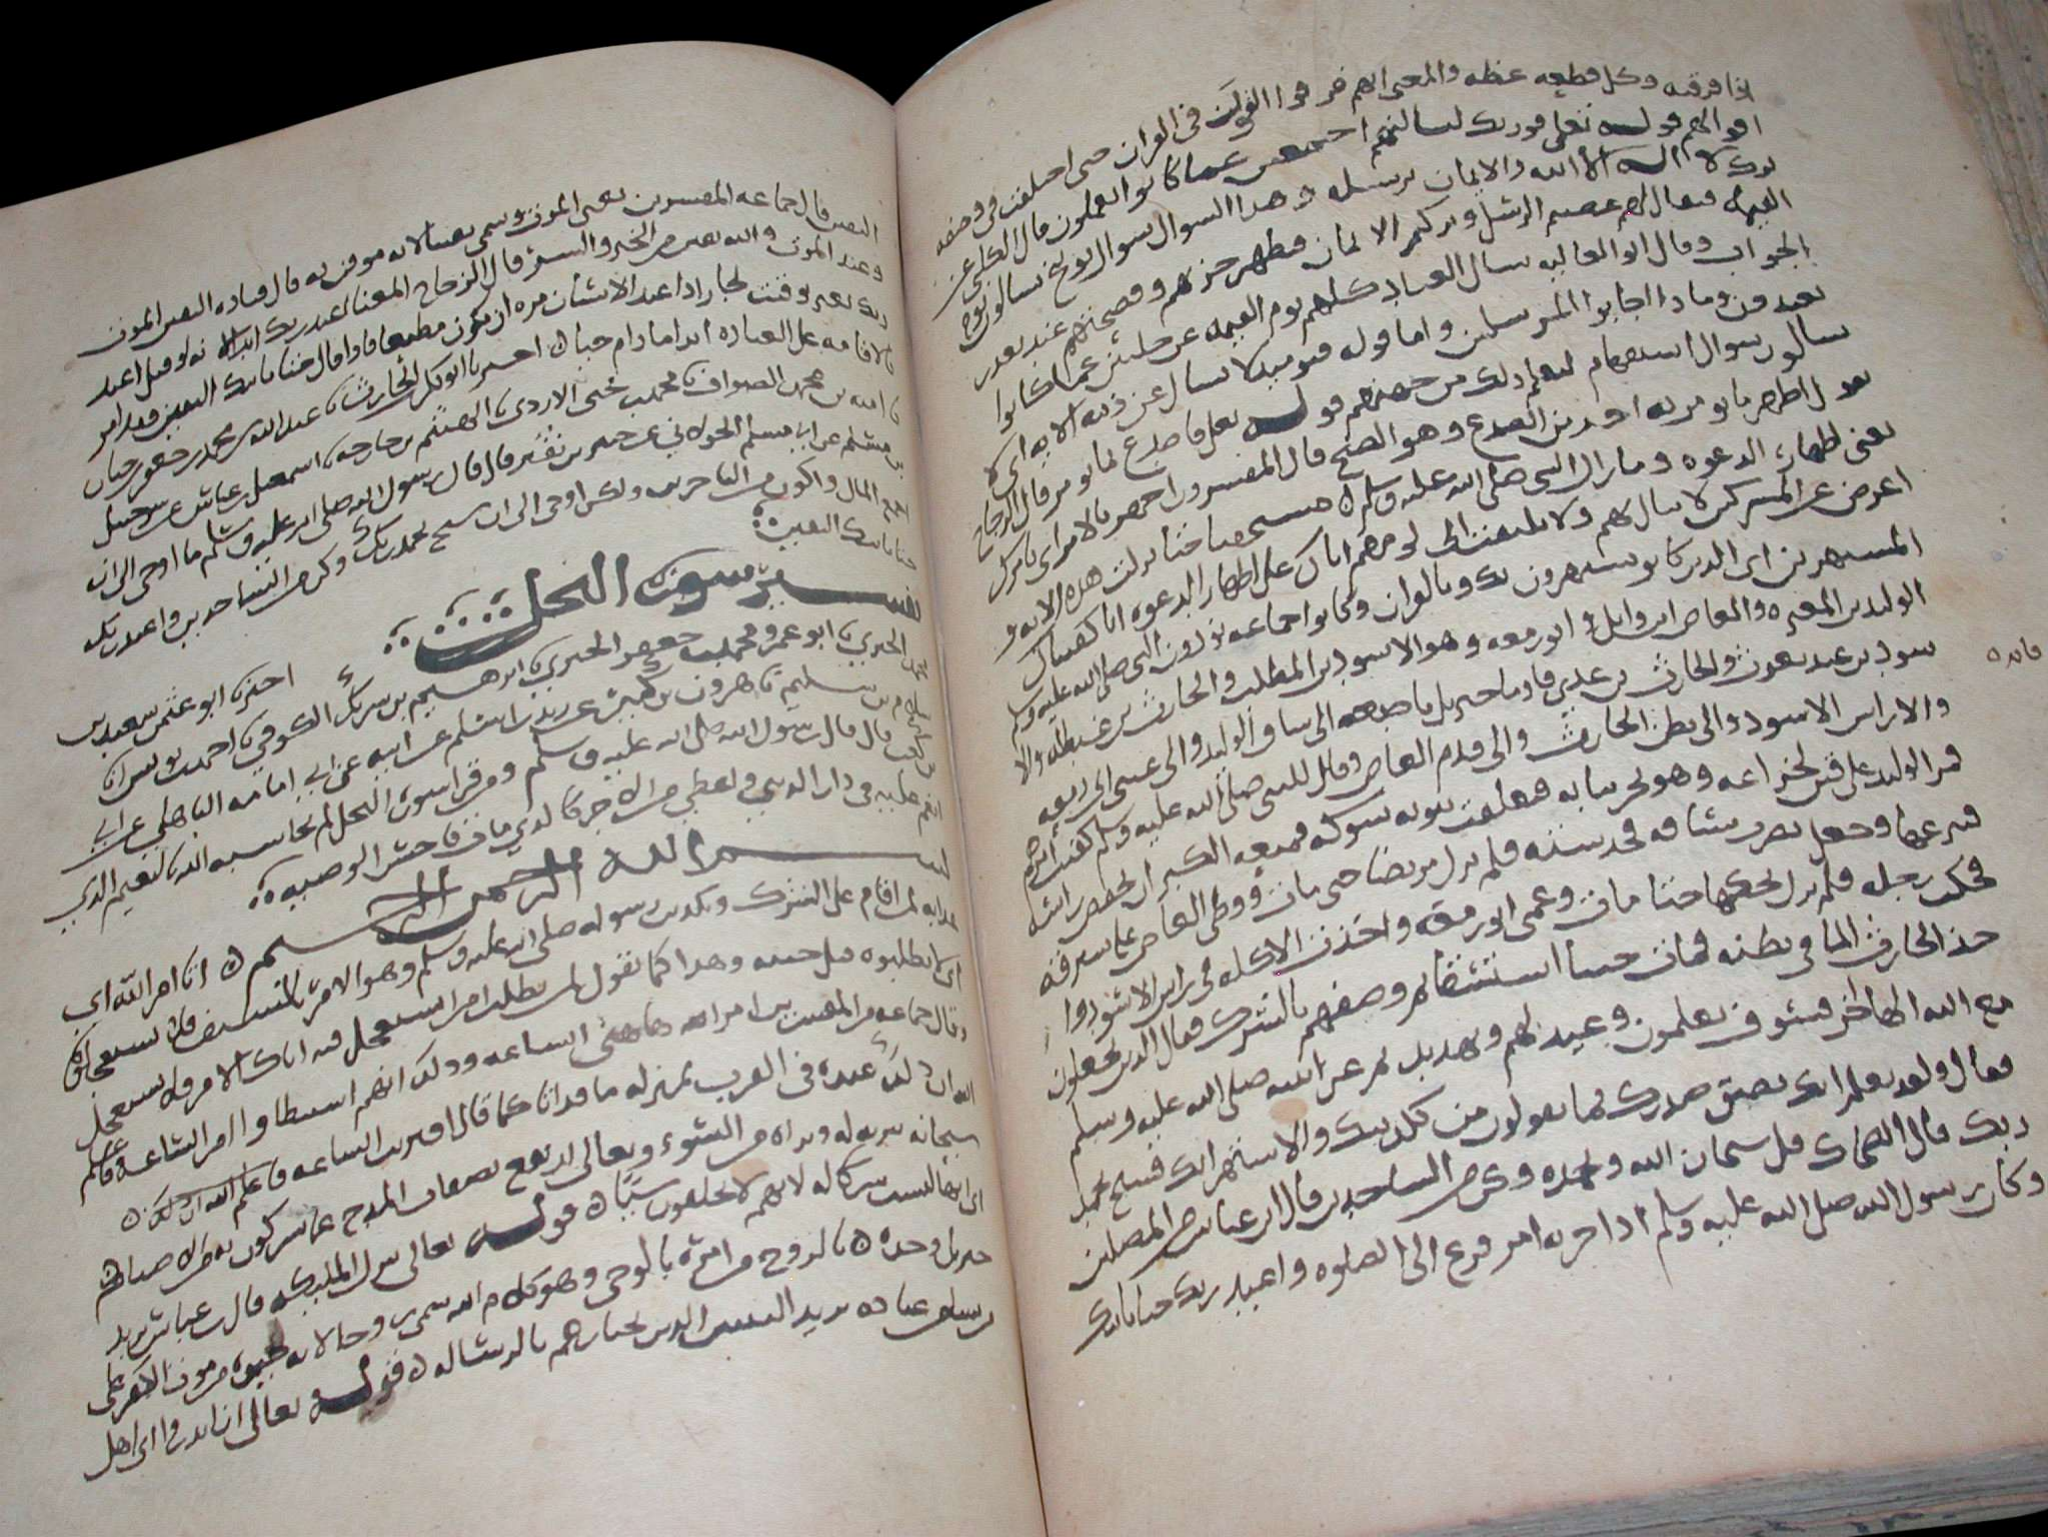 اذا فرقته وكل قطعه عضه والمعنى انهم فرقوا القول في القران حتى اختلفت في وصفه
اقوالهم قوله تعلى فوربك لنسالنهم اجمعين عما كانوا يعملون قال الكلبي عن
لا اله الا الله والايمان برسله وهذا السوال سوال توبيخ يسالون يوم
القيمه فيقال لهم عصيتم الرسل وتركتم الايمان فيظهر خزيهم وفضيحتهم عند تعذر
الجواب وقال ابو العاليه يسال العباد كلهم يوم القيمه عن خلتين عما كانوا
يعبدون وماذا اجابوا المرسلين واما قوله فيوميذ لا يسال عن ذنبه الايه اي لا
يسالون سوال استفهام ليعلم ذلك من جهتهم قوله تعلى فاصدع بما تومر قال الزجاج
يقول اظهر ما تومر به اخذ من الصديع وهو الصبح قال المفسرون اجهر بالامر اي بامرك
يعنى اظهار الدعوه وما زال النبي صلى الله عليه وسلم مستخفيا حتا نزلت هذه الايه و
اعرض عن المشركين لا تبال بهم ولا تلتفت الى لومهم اياك على اظهار الدعوه انا كفيناك
المستهزين اي الذين كانوا يستهزون بك وبالقران وكانوا جماعه يوذون النبي صلى الله عليه وسلم
الوليد بن المغيره والعاص ابن وايل وابو زمعه وهو الاسود بن المطلب والحارث بن غيطله والا
سود بن عبد يغوث والحارث بن عدي فاوما جبريل باصبعه الى ساق الوليد والى عيني ابي زمعه
فايده
والى راس الاسود والى بطن الحارث والى قدم العاص وقال للنبي صلى الله عليه وسلم كفيت امرهم
فمر الوليد على قين لخزاعه وهو يجر ثيابه فعلقت بثوبه شوكه فمنعه الكبر ان يخفض راسه
فينزعها وجعل تضرب ساقه فخدشته فلم يزل مريضا حتى مات ووطى العاص على شبرقه
فحكت رجله فلم يزل يحكها حتا مات وعمى ابو زمعه واخذت الاكله في راس الاسود و
اخذ الحارث الما في بطنه فمات حبنا استسقا ثم وصفهم بالشرك فقال الذين يجعلون
مع الله الها اخر فسوف يعلمون وعيد لهم وتهديد ثم عزى نبيه صلى الله عليه وسلم
فقال ولقد نعلم انك يضيق صدرك بما يقولون من تكذيبك والاستهزا بك فسبح بحمد
ربك قال الضحاك قل سبحان الله وبحمده وكن من الساجدين قال ابن عباس من المصلين
وكان رسول الله صلى الله عليه وسلم اذا حزبه امر فزع الى الصلوه واعبد ربك حتا ياتيك
اليقين قال جماعه المفسرين يعنى الموت وسمى يقينا لانه موقن به قال قتاده اليقين الموت
وعند الموت والله يقين من الخير والشر قال الزجاج المعنا اعبد ربك ابدا لانه لو قيل اعبد
ربك بغير توقيت لجاز اذا عبد الانسان مره ان يكون مطيعا فاذا قال حتا ياتيك اليقين فقد امر
بالاقامه على العباده ابدا ما دام حيا اخبرنا ابو بكر الحارثي عبد الله بن محمد بن جعفر حيان
محمد يحيى الازدي الهيثم بن خارجه اسمعيل بن عياش عن شرحبيل
بن مسلم عن ابي مسلم الخولاني عن جبير بن نفير قال قال رسول الله صلى الله عليه وسلم ما اوحي الى ان
اجمع المال واكون من التاجرين ولكن اوحى الى ان سبح بحمد ربك وكن من الساجدين واعبد ربك
حتا ياتيك اليقين
تفسير سورة النحل
اخبرنا ابو عثمن سعيد بن
محمد الحيري ابو عمرو محمد بن جعفر الحيري ابرهيم بن شريك الكوفي احمد بن يونس
سلام بن سليم هرون بن كثير عن زيد بن اسلم عن ابيه عن ابي امامه الباهلي عن ابي
بن كعب قال قال رسول الله صلى الله عليه وسلم ومن قرا سورة النحل لم يحاسبه الله بالنعيم الذي
انعم عليه في دار الدنيا واعطي من الاجر كالذي مات فاحسن الوصيه
بسم الله الرحمن الرحيم اتا امر الله اي
عذابه لمن اقام على الشرك وتكذيب رسوله صلى الله عليه وسلم وهو الامر بالسيف فلا تستعجلوه
اي لا تطلبوه قبل حينه وهذا كما تقول لمن يطلب امرا يستعجل فيه اتاك الامر فلا تستعجل
وقال جماعه من المفسرين امر الله هاهنا الساعه وذلك انهم استبطاوا امر الساعه فاعلم
الله ان ذلك عنده في القرب بمنزله ما قد اتا كما قال اقتربت الساعه
سبحانه تنزيه له وبراه من السوء وتعالى ارتفع بصفات المدح عما يشركون
اي انها ليست شركا له لانهم لا يخلقون شيا قوله تعالى ينزل المليكه قال ابن عباس يريد
جبريل وحده بالروح من امره بالوحي وهو كلام الله سمي روحا لانه حيوه من موت الكفر على
من يشا من عباده يريد النبيين الذين يختارهم بالرساله قوله تعالى ان انذروا اي اهل